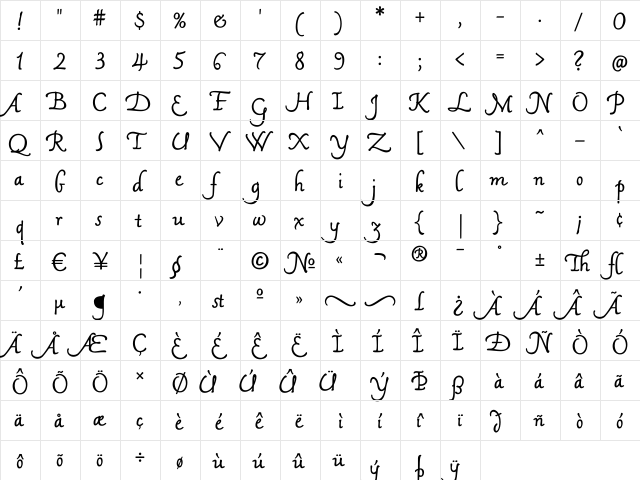 ! " # $ % & ' ( ) * + , - . / 0
1 2 3 4 5 6 7 8 9 : ; < = > ? @
A B C D E F G H I J K L M N O P
Q R S T U V W X Y Z [ \ ] ^ _ `
a b c d e f g h i j k l m n o p
q r s t u v w x y z { | } ~ ¡ ¢
£ € ¥ ¦ § ¨ © № « ¬ ® ¯ ° ± Th fl
´ µ ¶ · ¸ st º » ſ ¿ À Á Â Ã
Ä Å Æ Ç È É Ê Ë Ì Í Î Ï Ð Ñ Ò Ó
Ô Õ Ö × Ø Ù Ú Û Ü Ý Þ ß à á â ã
ä å æ ç è é ê ë ì í î ï ñ ò ó
ô õ ö ÷ ø ù ú û ü ý þ ÿ